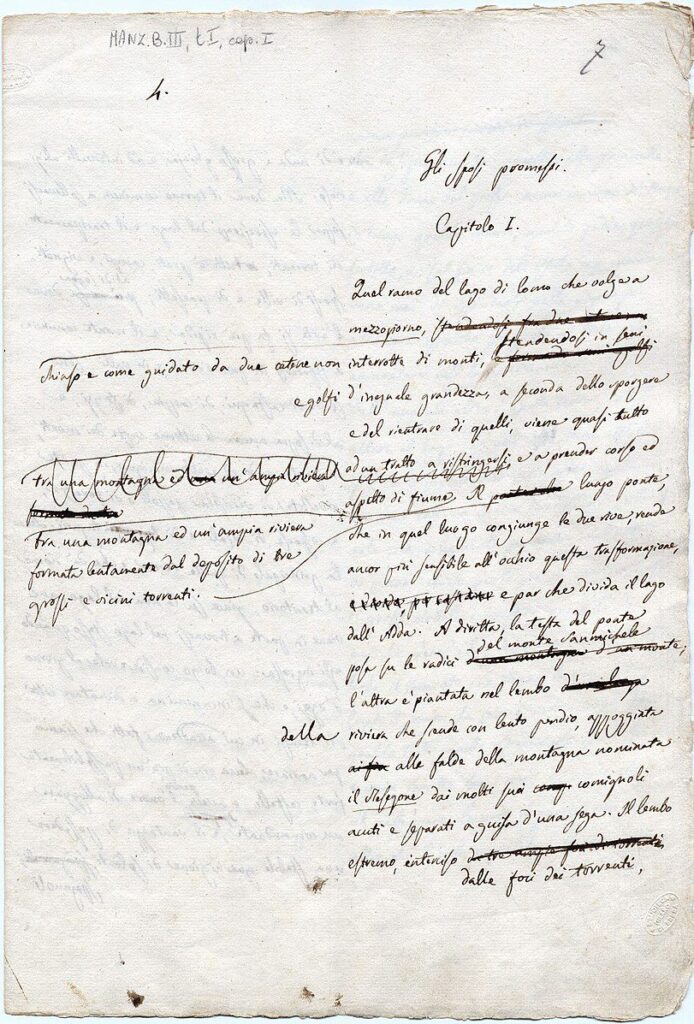 MANZ.B.III, t I, cap. I
7
4.
Gli sposi promessi.
Capitolo I.
Quel ramo del lago di Como che volge a
mezzogiorno, stendendosi fra due
stendendosi in seni
chiuso e come guidato da due catene non interrotte di monti,
e golfi d'inguale grandezza, a seconda dello sporgere
e del rientrare di quelli, viene quasi tutto
tra una montagna ed un'ampia riviera
ad un tratto a ristringersi e a prender corso ed
aspetto di fiume. Il luogo ponte,
tra una montagna ed un'ampia riviera
formata lentamente dal deposito di tre
grossi e vicini torrenti.
che in quel luogo congiunge le due rive, rende
ancor più sensibile all'occhio questa trasformazione,
e par che divida il lago
dall'Adda. A diritta, la testa del ponte
del monte Sanmichele
posa su le radici d'una montagna d'un monte,
l'altra è piantata nel lembo
della riviera che scende con lento pendio, appoggiata
alle falde della montagna nominata
il Resegone dai molti suoi comignoli
acuti e separati a guisa d'una sega. Il lembo
estremo, interciso da tre ampie foci di torrenti,
dalle foci dei torrenti,